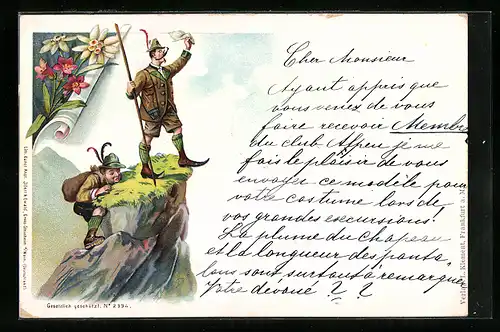 Cher Monsieur
Ayant appris que
vous venez de vous
faire recevoir Membre
du club Alpen je me
fais le plaisir de vous
envoyer ce modèle pour
votre costume lors de
vos grandes excursions!
La plume du chapeau
et la longueur des panta-
lons sont surtout à remarquer
Votre dévoué ? ?
Gesetzlich geschützt. Nº 2894.
Klement, Frankfurt a.